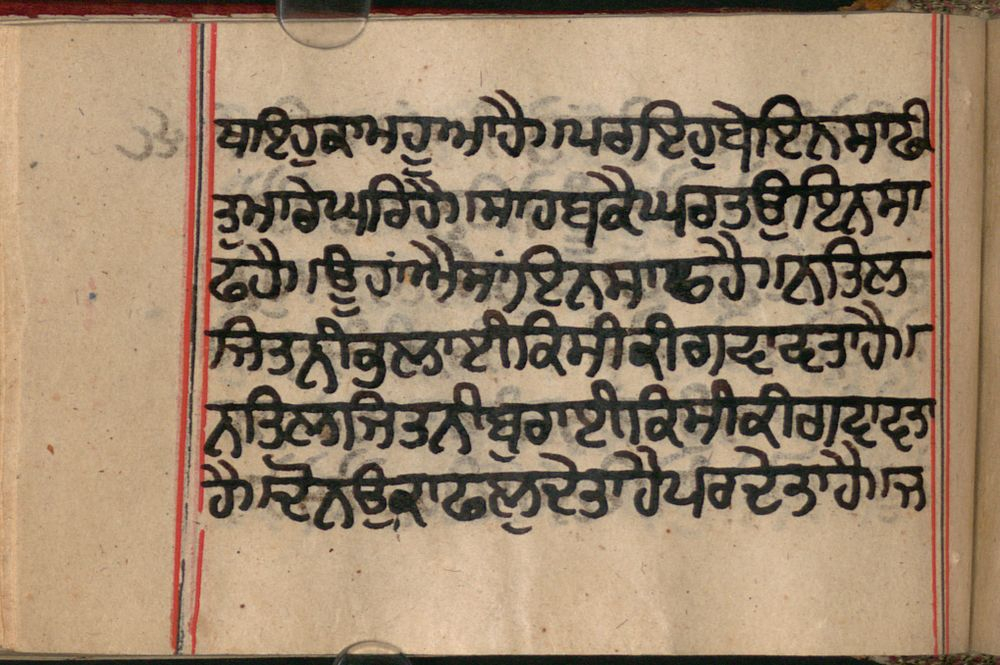 ਬਾਇਹੁਕਾਮਹੂਆਹੈ॥ਪਰਇਹੁਬੇਇਨਸਾਫੀ
ਤੁਮਾਰੇਘਰਿਹੈ॥ਸਾਹਬਕੈਘਰਤਉਇਨਸਾ
ਫਹੈ॥ਊਹਾਂਐਸਾਂਇਨਸਾਫਹੈ॥ਨਤਿਲ
ਜਿਤਨੀਭੁਲਾਈਕਿਸੀਕੀਗਵਾਵਤਾਹੈ॥
ਨਤਿਲਜਿਤਨੀਬੁਰਾਈਕਿਸੀਕੀਗਵਾਵਤਾ
ਹੈ॥ਦੋਨਉਕਾਫਲੁਦੇਤਾਹੈਪਰਦੇਤਾਹੈ॥ਜ